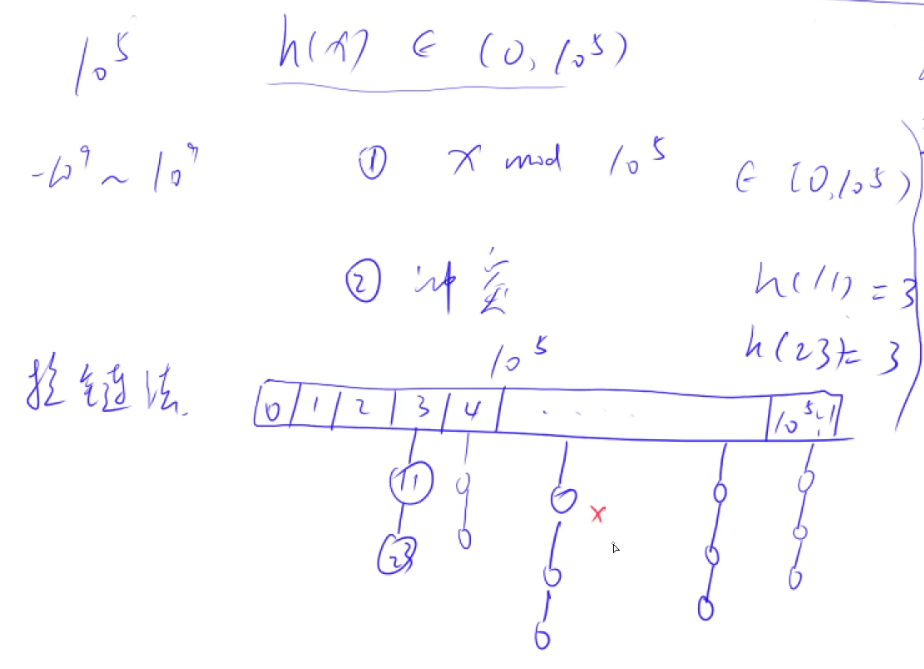 10^5 h(x) ∈ (0, 10^5)
-10^9 ~ 10^9 ① x mod 10^5 ∈ [0, 10^5)
② 冲突 h(11) = 3
h(23) = 3
拉链法 10^5
0 1 2 3 4 ..... 10^5-1
11
23
x